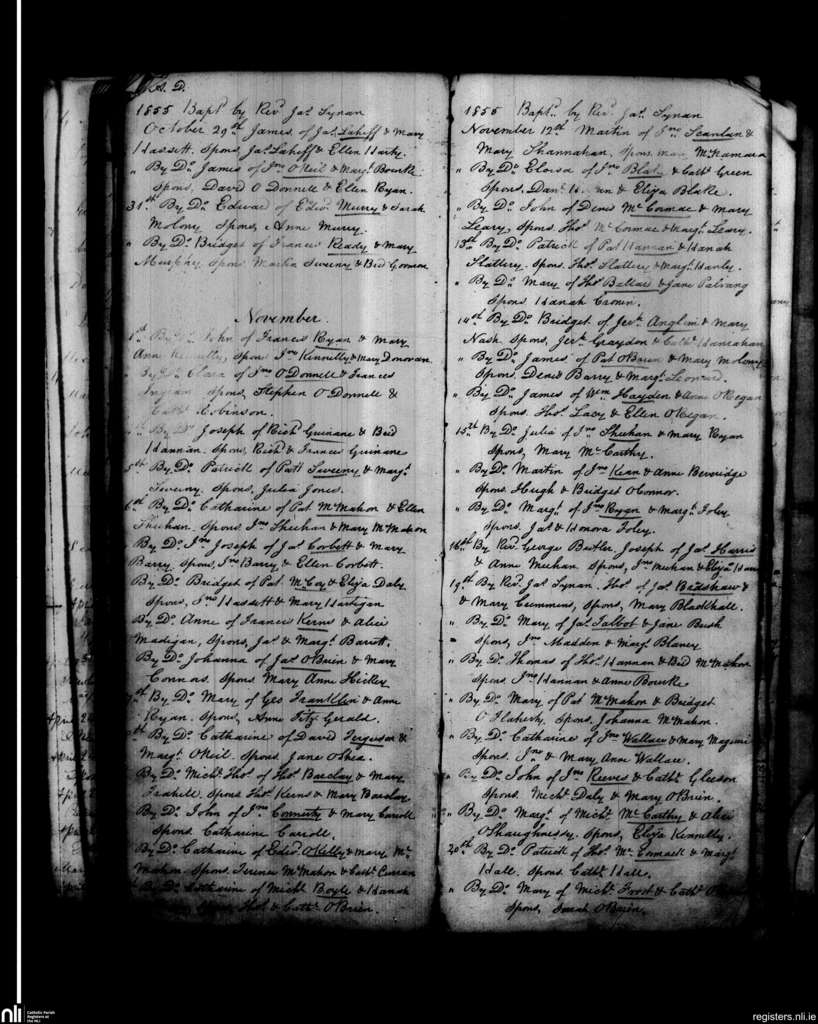 A. D.
1855 Bapt. by Revd. Jas. Synan
October 29th James of Jas. Lahiff & Mary
Hassett. Spons, Jas. Lahiff & Ellen
" By Do. James of Jno. O'Neil & Margt. Bourke
Spons, David O'Donnell & Ellen Ryan.
31st By Do. Edward of Edwd. Murry & Sarah
Molony Spons, Anne Murry.
" By Do. Bridget of Francis Ready & Mary
Murphy. Spons Martin Sweeny & Bid Gorman
November.
1st By Do. John of Francis Ryan & Mary
Anne Kennelly, Spons Jno. Kennelly & Mary Donovan
By Do. Clara of Jno. O'Donnell & Frances
Spons, Stephen O'Donnell &
Cathe. Robinson.
By Do. Joseph of Richd. Guinane & Bid
Hannan. Spons, Richd. & Frances Guinane
5th By Do. Patrick of Patt Sweeny & Margt.
Sweeny. Spons, Julia Jones.
6th By Do. Catharine of Pat McMahon & Ellen
Sheehan. Spons Jno. Sheehan & Mary McMahon
By Do. Jno. Joseph of Jas. Corbett & Mary
Barry. Spons, Jno. Barry & Ellen Corbett.
By Do. Bridget of Pat. McCoy & Eliza Daly
Spons, Jno. Hassett & Mary Hartigan
By Do. Anne of Francis Kerns & Alice
Madigan, Spons, Jas. & Margt. Barrett.
By Do. Johanna of Jas. O'Brien & Mary
Connors. Spons Mary Anne Hickey
By Do. Mary of Geo Franklin & Anne
Ryan. Spons, Anne Fitz Gerald.
By Do. Catharine of David Ferguson &
Margt. O'Neil. Spons Jane O'Shea.
By Do. Michl. Thos. of Thos. Barclay & Mary
Frahill. Spons Thos. Kerns & Mary Barclay
By Do. John of Jno. & Mary Carroll
Spons. Catharine Carroll.
By Do. Catharine of Edwd. O'Kelly & Mary Mc
Mahon. Spons Terence McMahon & Cathe. Curran
By Do. Catharine of Michl. Boyle & Hanah
Thos. & Cathe. O'Brien.
1855 Bapt. by Revd. Jas. Synan
November 12th Martin of Jno. Scanlan &
Mary Shannahan. Spons. Mary McNamara
" By Do. of Jno. Blake & Cathe. Green
Spons. Danl. & Eliza Blake.
" By Do. John of Denis McCormac & Mary
Leary, Spons. Thos. McCormac & Margt. Leary.
13th By Do. Patrick of Pat Hannan & Hanah
Slattery. Spons. Thos. Slattery & Margt. Hanly.
" By Do. Mary of Thos. & Jane
Spons Hanah Cronin.
14th By Do. Bridget of Jerh. Anglin & Mary
Nash. Spons, Jerh. Graydon & Cathe. Hanrahan
" By Do. James of Pat O'Brien & Mary Molony
Spons. Denis Barry & Margt. Leonard.
" By Do. James of Wm. Hayden & Anne O'Regan
Spons. Thos. Lacy & Ellen O'Regan.
15th By Do. Julia of Jno. Sheehan & Mary Ryan
Spons, Mary McCarthy.
" By Do. Martin of Jno. Kean & Anne Beveridge
Spons. Hugh & Bridget O'Connor.
" By Do. Margt. of Jno. Ryan & Margt. Foley
Spons. Jas. & Honora Foley.
16th By Revd. George Butler. Joseph of Jas. Harris
& Anne Meehan. Spons, Jno. Meehan & Eliza
19th By Revd. Jas. Synan. Thos. of Jas. Badshaw &
& Mary Cummins, Spons, Mary Blackhall.
" By Do. Mary of Jas. Talbot & Jane Bush
Spons, Jno. Madden & Margt. Blaney
" By Do. Thomas of Thos. Hannan & Bid McMahon
Spons Jno. Hannan & Anne Bourke
" By Do. Mary of Pat McMahon & Bridget
O'Flaherty. Spons. Johanna McMahon.
" By Do. Catharine of Jno. Wallace & Mary
Spons. Jno. & Mary Anne Wallace.
" By Do. John of Jno. Reeves & Cathe. Gleeson
Spons. Michl. Daly & Mary O'Brien.
" By Do. Margt. of Michl. McCarthy & Alice
O'Shaughnessy. Spons, Eliza Kennelly.
20th By Do. Patrick of Thos. McCormack & Margt.
Hall. Spons. Cathe. Hall.
" By Do. Mary of Michl. Frost & Cathe.
Spons, Sarah O'Brien.
nli
Catholic Parish
Registers at
the NLI
registers.nli.ie